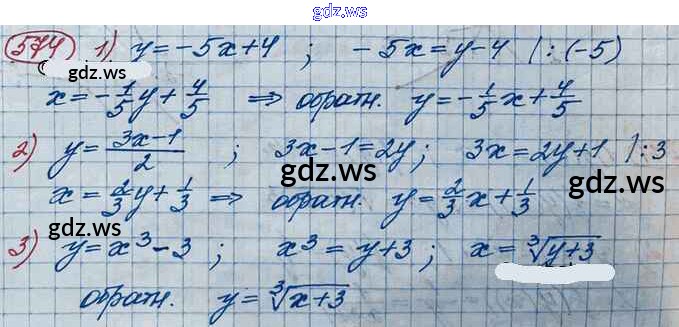 gdz.ws
574 1) y = -5x+4 ; -5x = y-4 | : (-5)
gdz.ws gdz.ws
x = -1/5 y + 4/5 ⇒ обратн. y = -1/5 x + 4/5
2) y = (3x-1)/2 ; 3x-1 = 2y ; 3x = 2y+1 | : 3
gdz.ws gdz.ws
x = 2/3 y + 1/3 ⇒ обратн. y = 2/3 x + 1/3
gdz.ws
3) y = x³ - 3 ; x³ = y+3 ; x = ∛(y+3)
обратн. y = ∛(x+3)
gdz.ws